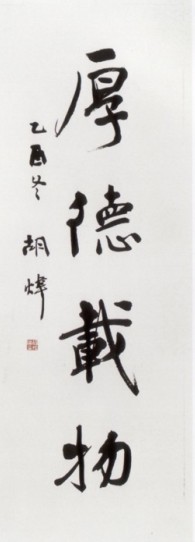 厚德載物
乙酉冬 胡煒